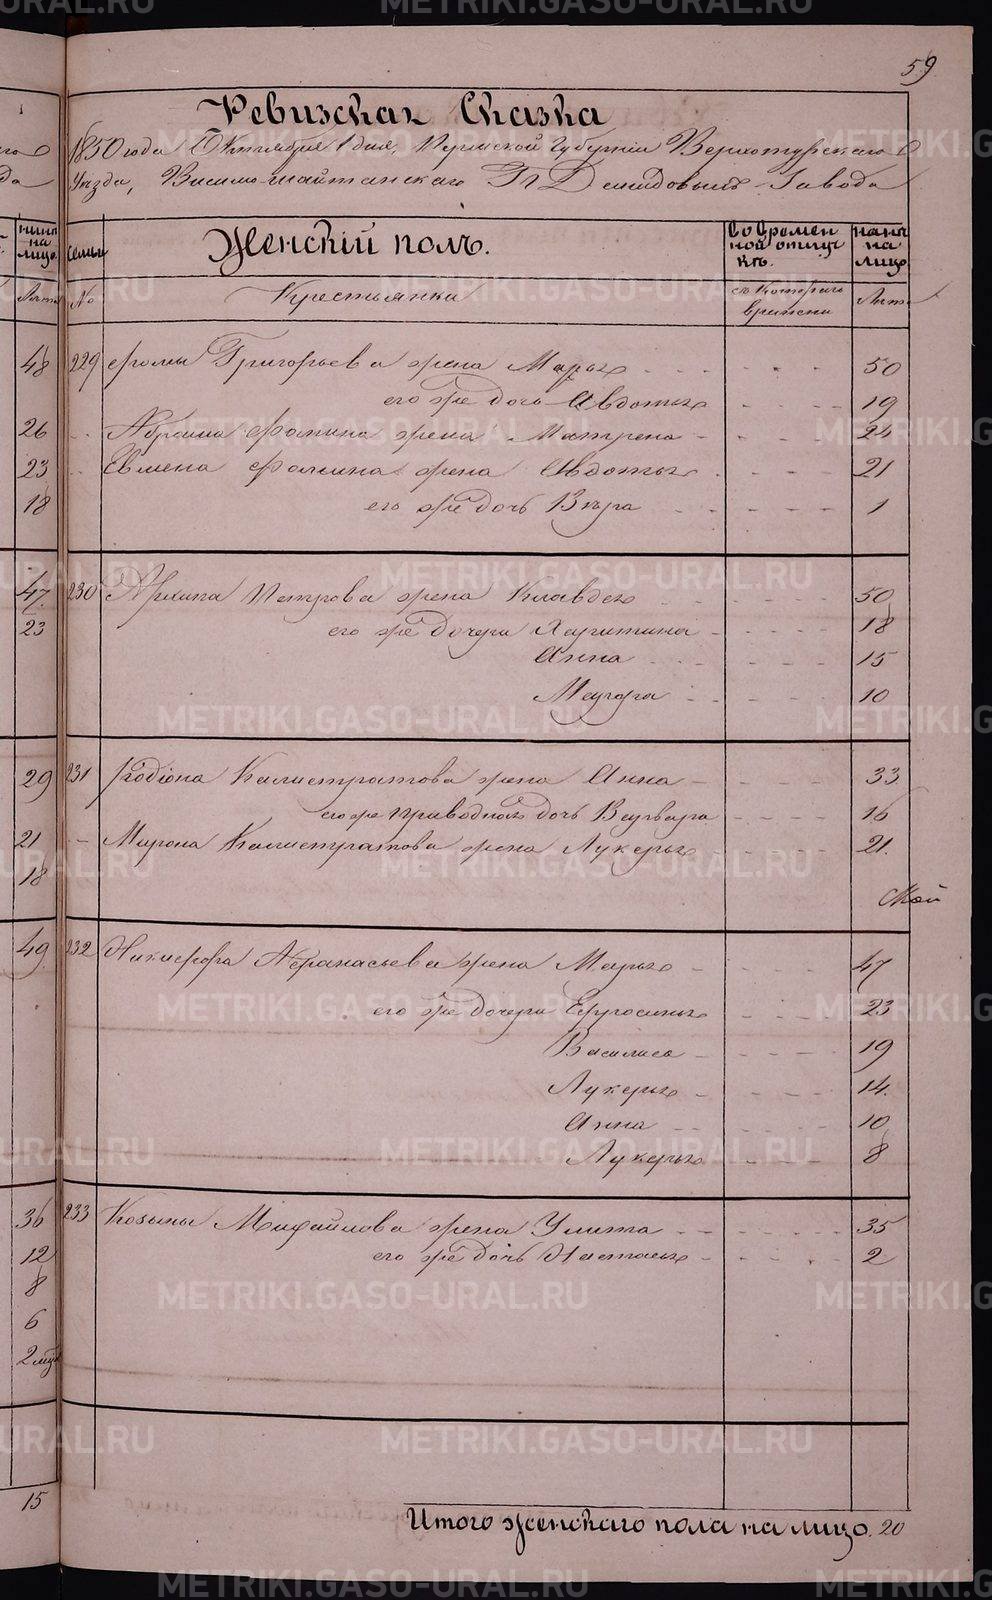 59
Ревизская Сказка
1850 года Октября 1 дня, Пермской Губернiи Верхотурскаго
Уѣзда, Висимошайтанскаго Гп Демидовыхъ Завода
Женскiй полъ.
Во времен
ной отлуч
кѣ.
нынѣ
на
лицо
Семьи
№
Крестьянки
съ котораго
времени
Лѣта
нынѣ
на
лицо
Лѣта
48 229 Фомы Григорьева жена Марья 50
его же дочь Авдотья 19
26 Абрама Фомина жена Матрена 24
23 Евмена Фомина жена Авдотья 21
18 его же дочь Вѣра 1
47. 230 Архипа Петрова жена Клавдея 50
23 его же дочери Харитина 18
Анна 15
Марфа 10
29 231 Родiона Калистратова жена Анна 33
его же приводная дочь Варвара 16
21 Мирона Калистратова жена Лукерья 21.
18
Май
49 232 Никифора Афанасьева жена Марья 47
его же дочери Ефросинья 23
Василиса 19
Лукерья 14.
Анна 10
Лукерья 8
36 233 Козьмы Михайлова жена Улита 35
12 его же дочь Настасья 2
8
6
2 мѣс
15
Итого женскаго пола на лицо. 20
METRIKI.GASO-URAL.RU